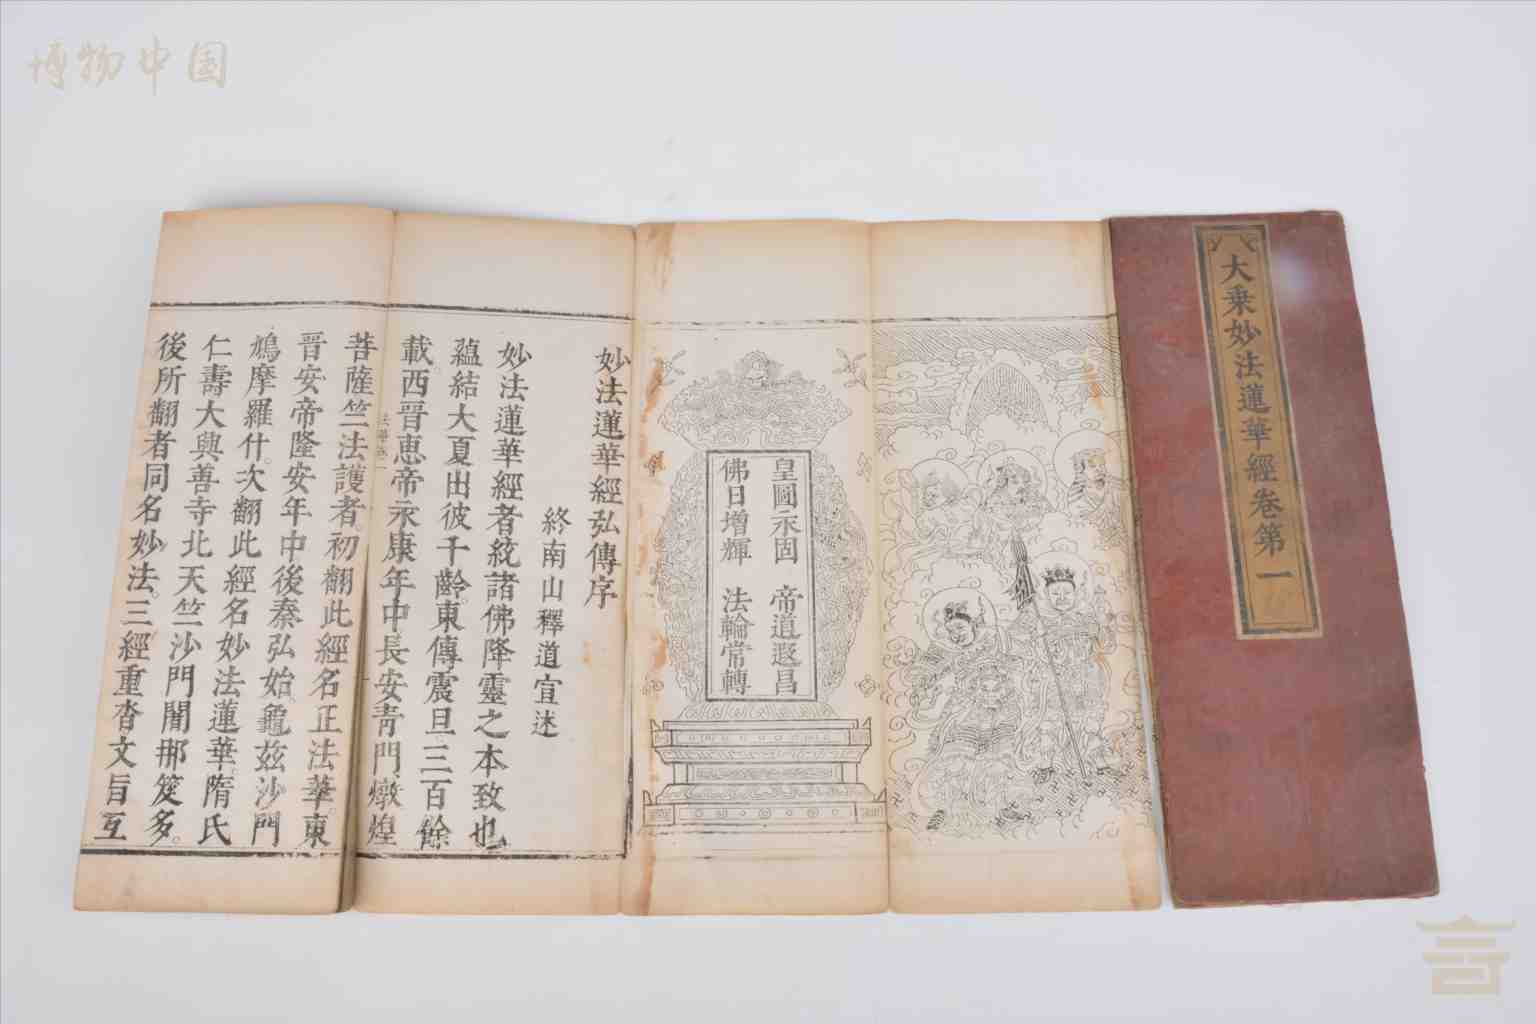 博物中国
大乗妙法蓮華經卷第一
皇圖永固　帝道遐昌
佛日增輝　法輪常轉
妙法蓮華經弘傳序
終南山釋道宣述
妙法蓮華經者統諸佛降靈之本致也
蘊結大夏出彼千齡東傳震旦三百餘
載西晉惠帝永康年中長安青門燉煌
菩薩竺法護者初翻此經名正法華東
晉安帝隆安年中後秦弘始龜茲沙門
鳩摩羅什次翻此經名妙法蓮華隋氏
仁壽大興善寺北天竺沙門闍那笈多
後所翻者同名妙法三經重沓文旨互